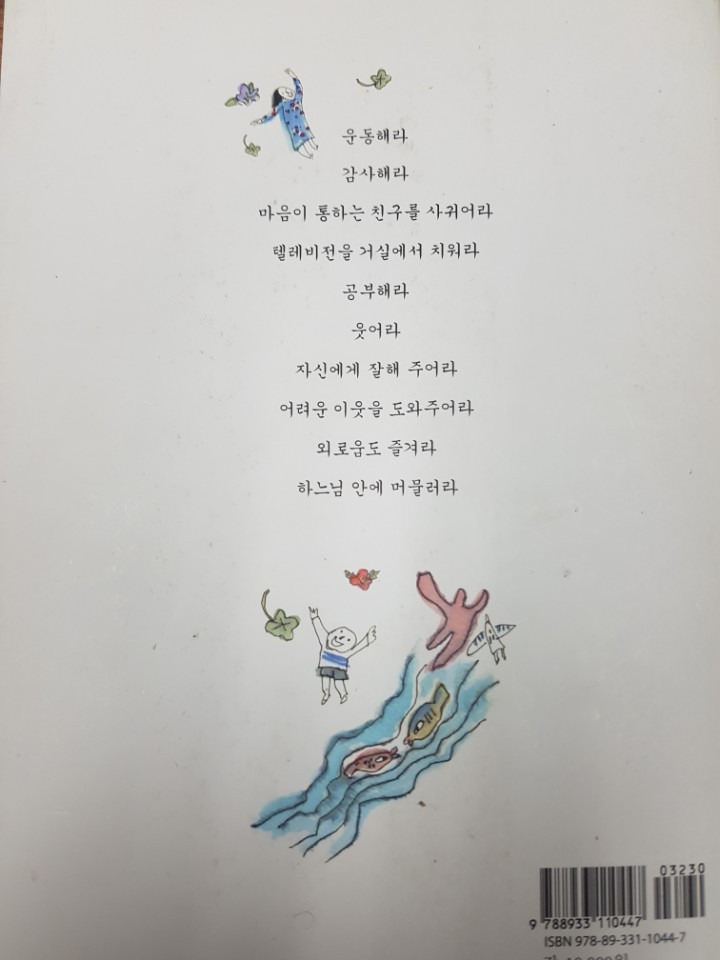 운동해라
감사해라
마음이 통하는 친구를 사귀어라
텔레비전을 거실에서 치워라
공부해라
웃어라
자신에게 잘해 주어라
어려운 이웃을 도와주어라
외로움도 즐겨라
하느님 안에 머물러라
03230
9 788933 110447
ISBN 978-89-331-1044-7